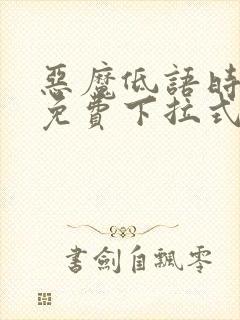 惡魔低語時
免費下拉式
書劍自飄零